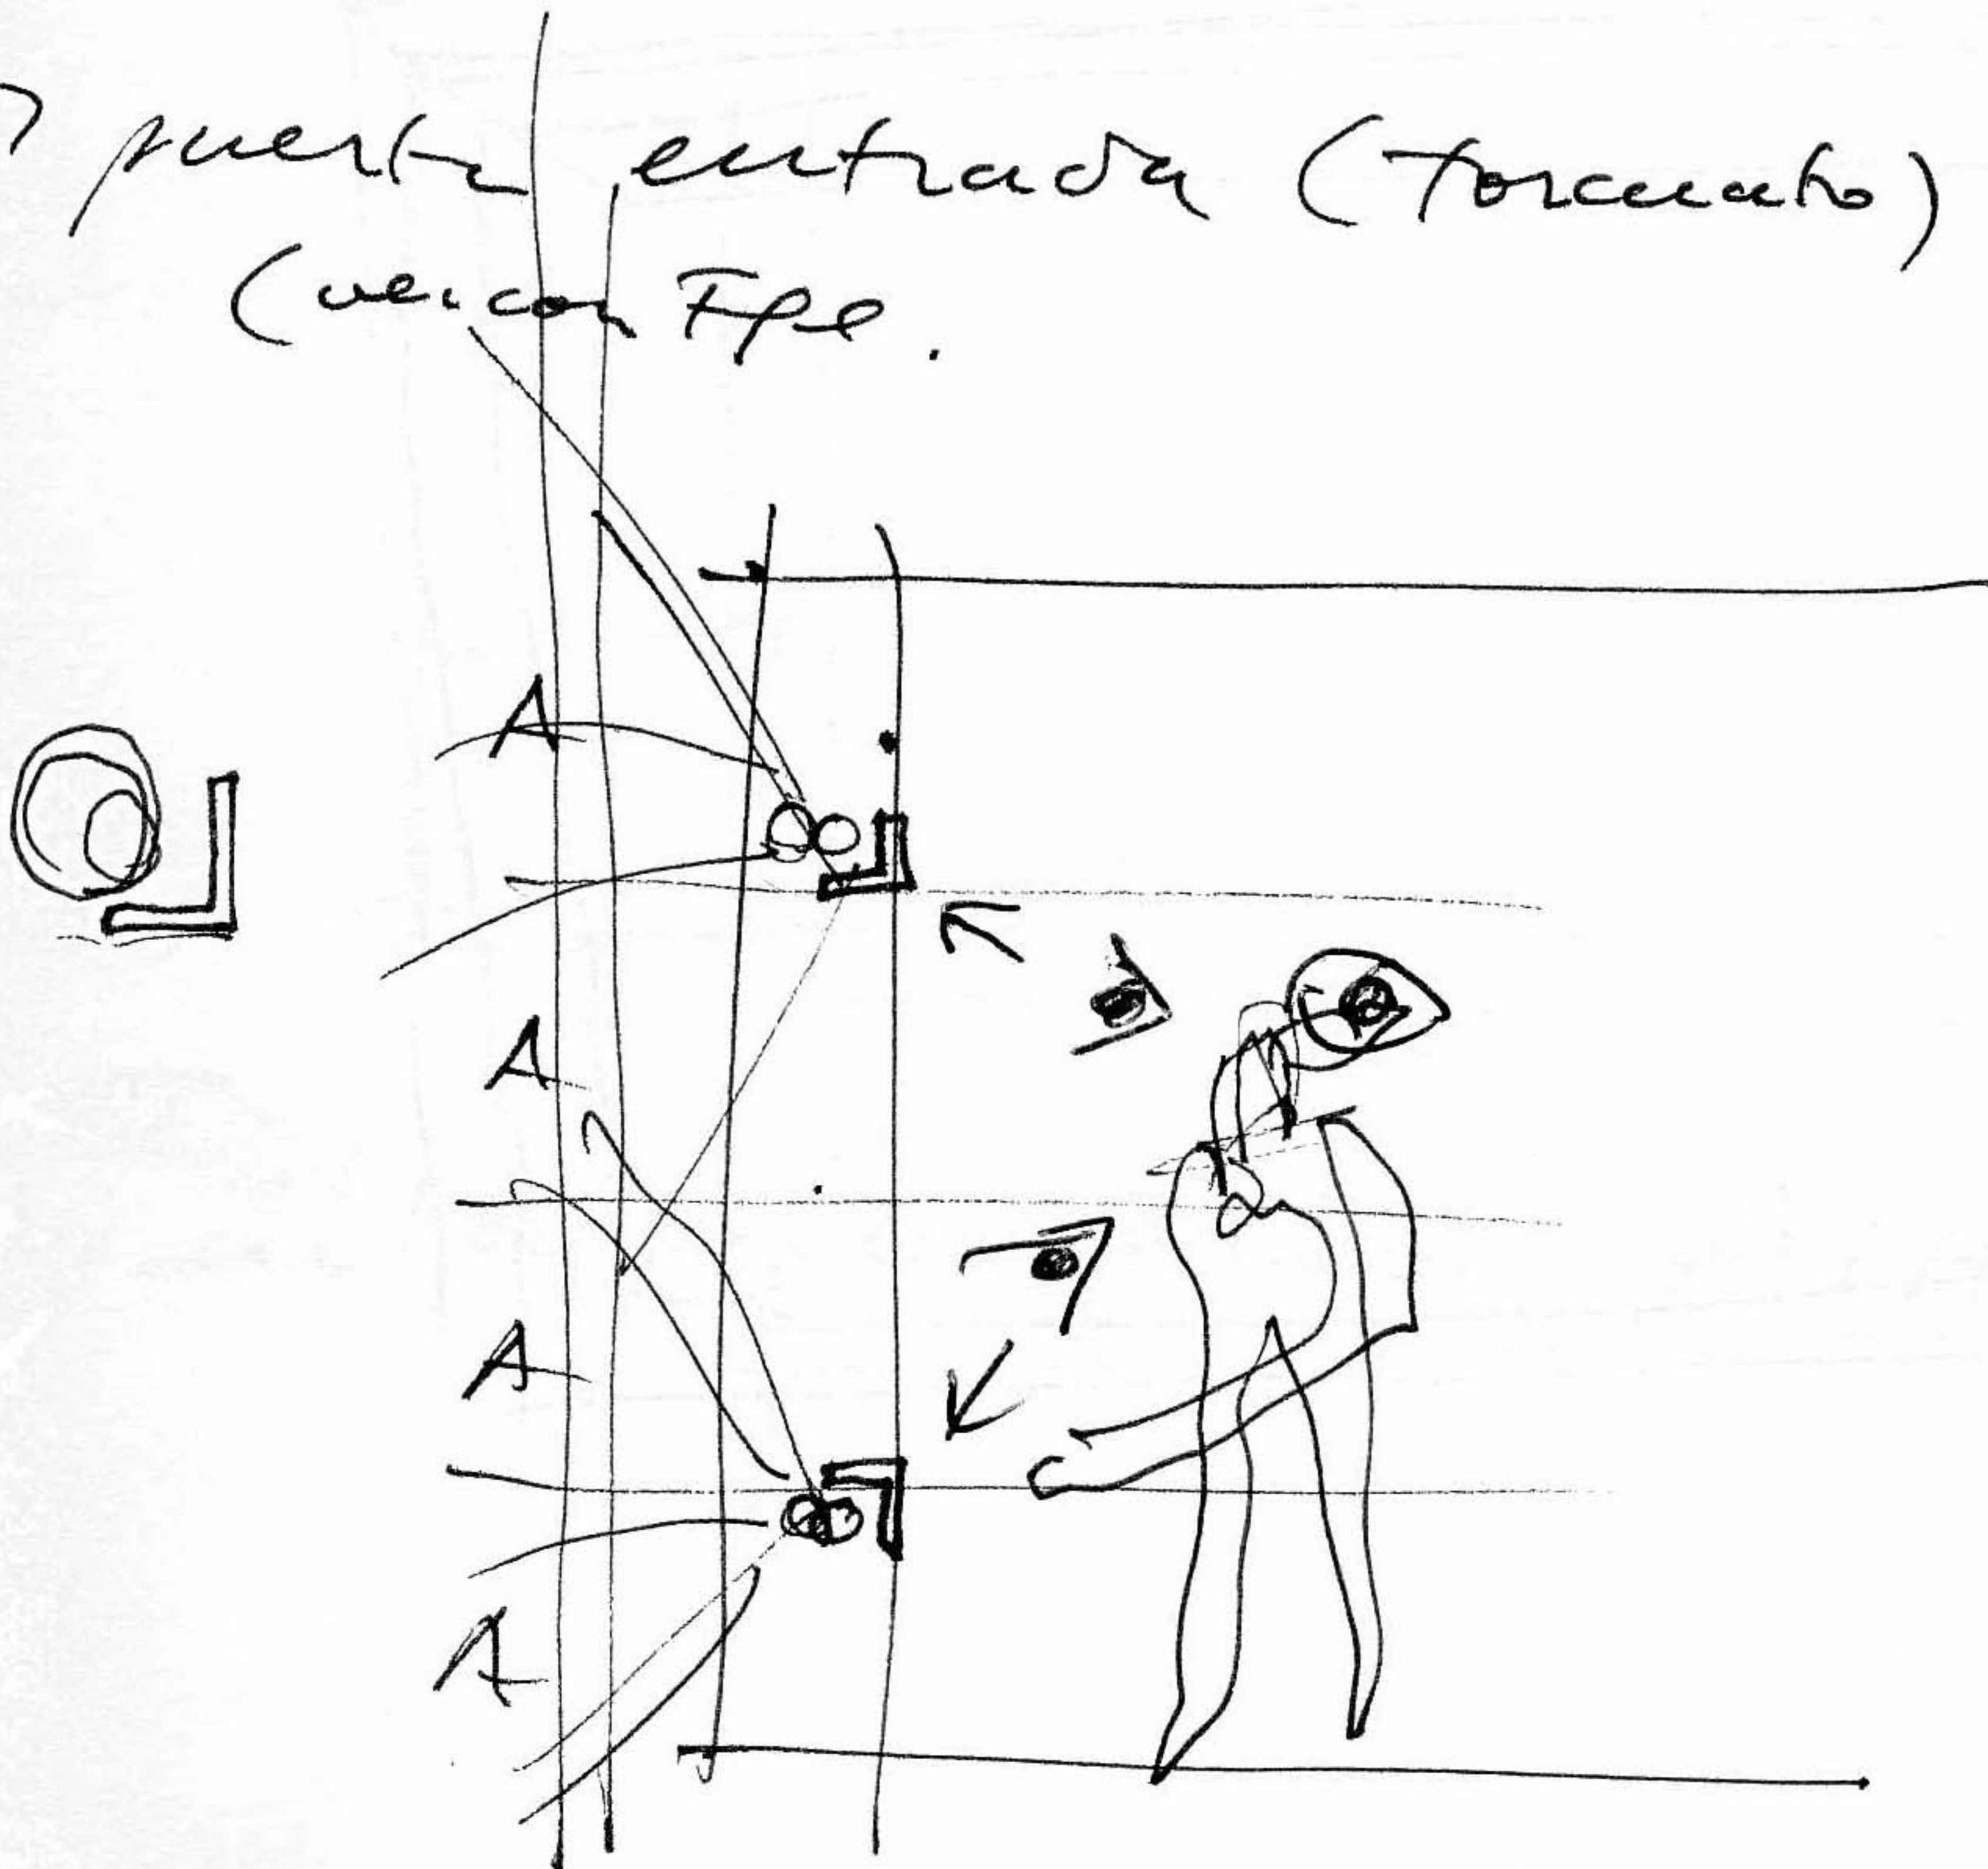 puerta entrada (Torcuato)
(ver con Fpe.
A
A
A
A